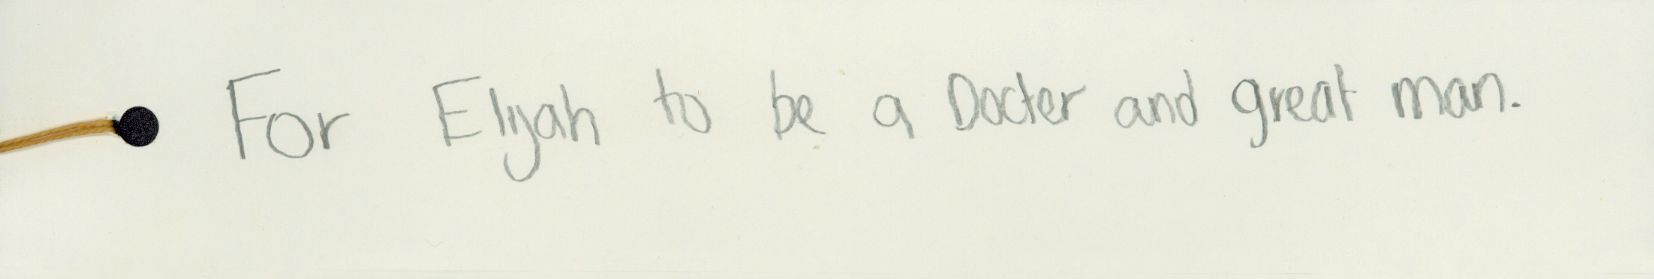 For Elijah to be a Docter and great man.